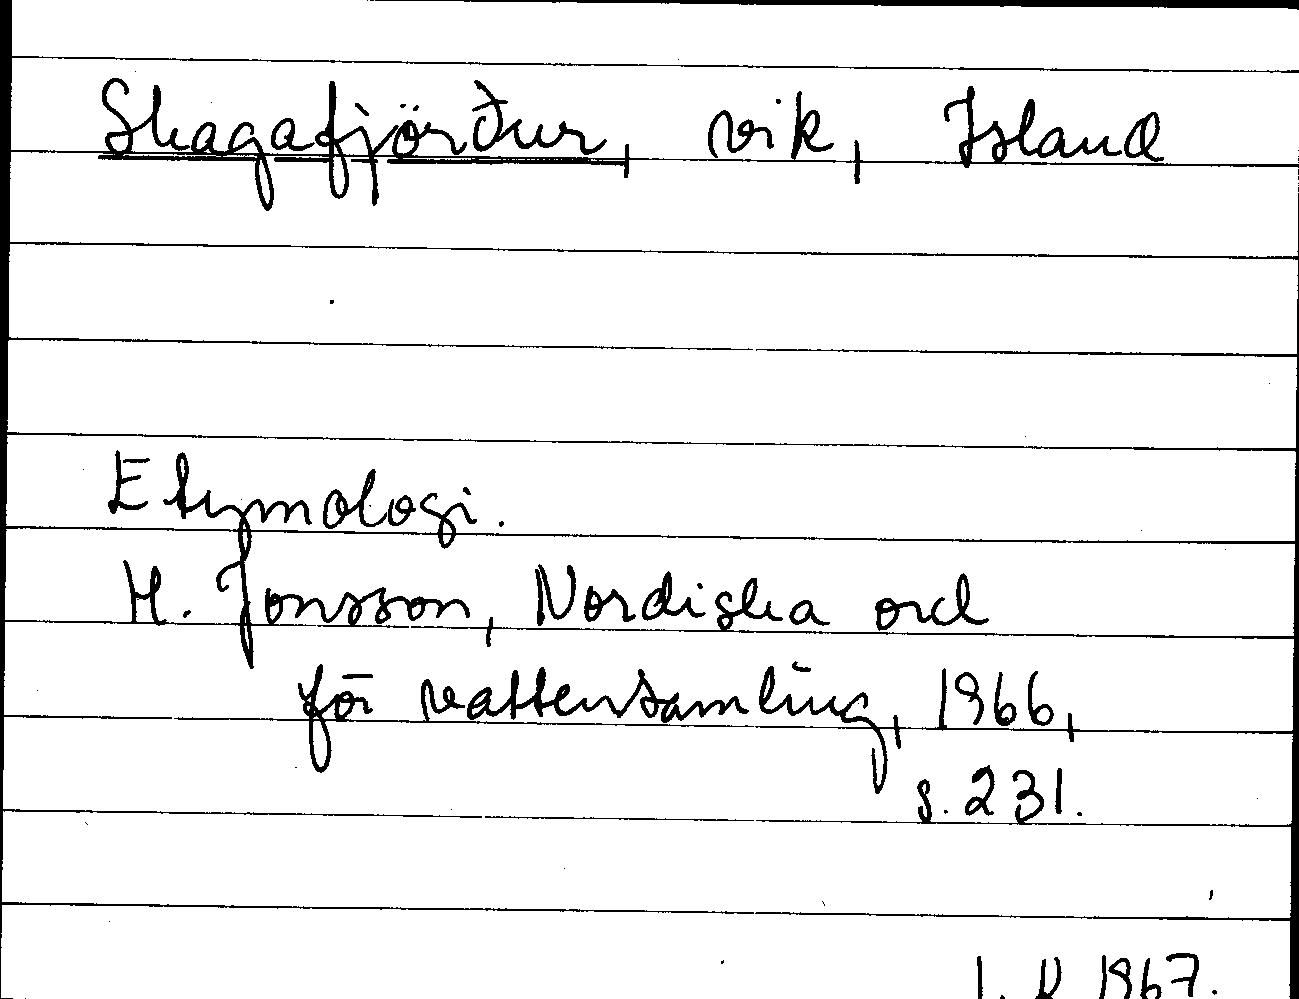 Skagafjörður, vik, Island
Etymologi.
H. Jonsson, Nordiska ord
för vattensamling, 1966,
s. 231.
1967.